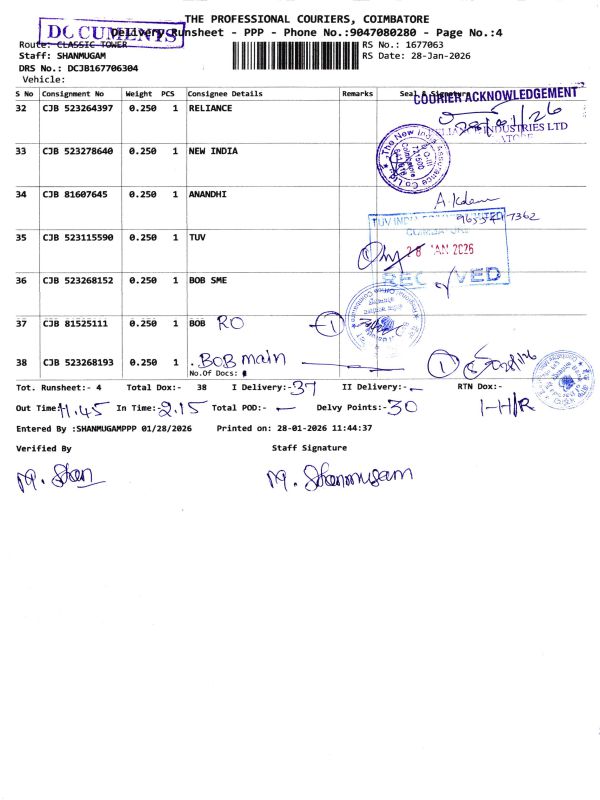 THE PROFESSIONAL COURIERS, COIMBATORE
DOCUMENTS
Delivery Runsheet - PPP - Phone No.:9047080280 - Page No.:4
Route: CLASSIC TOWER
RS No.: 1677063
Staff: SHANMUGAM
RS Date: 28-Jan-2026
DRS No.: DCJB167706304
Vehicle:
S No Consignment No Weight PCS Consignee Details Remarks Seal & Signature
COURIER ACKNOWLEDGEMENT
32 CJB 523264397 0.250 1 RELIANCE
28/01/26
INDUSTRIES LTD
33 CJB 523278640 0.250 1 NEW INDIA
The New India Assurance Co Ltd
721500
Coimbatore
34 CJB 81607645 0.250 1 ANANDHI
35 CJB 523115590 0.250 1 TUV
TUV INDIA
28 JAN 2026
RECEIVED
36 CJB 523268152 0.250 1 BOB SME
37 CJB 81525111 0.250 1 BOB RO 1
38 CJB 523268193 0.250 1 . BOB main 1
No.Of Docs:
Tot. Runsheet:- 4 Total Dox:- 38 I Delivery:- 37 II Delivery:- RTN Dox:-
Out Time:- 11.45 In Time:- 2.15 Total POD:- Delvy Points:- 30 1-H/R
Entered By :SHANMUGAMPPP 01/28/2026 Printed on: 28-01-2026 11:44:37
Verified By Staff Signature
M. Shan M. Shanmugam